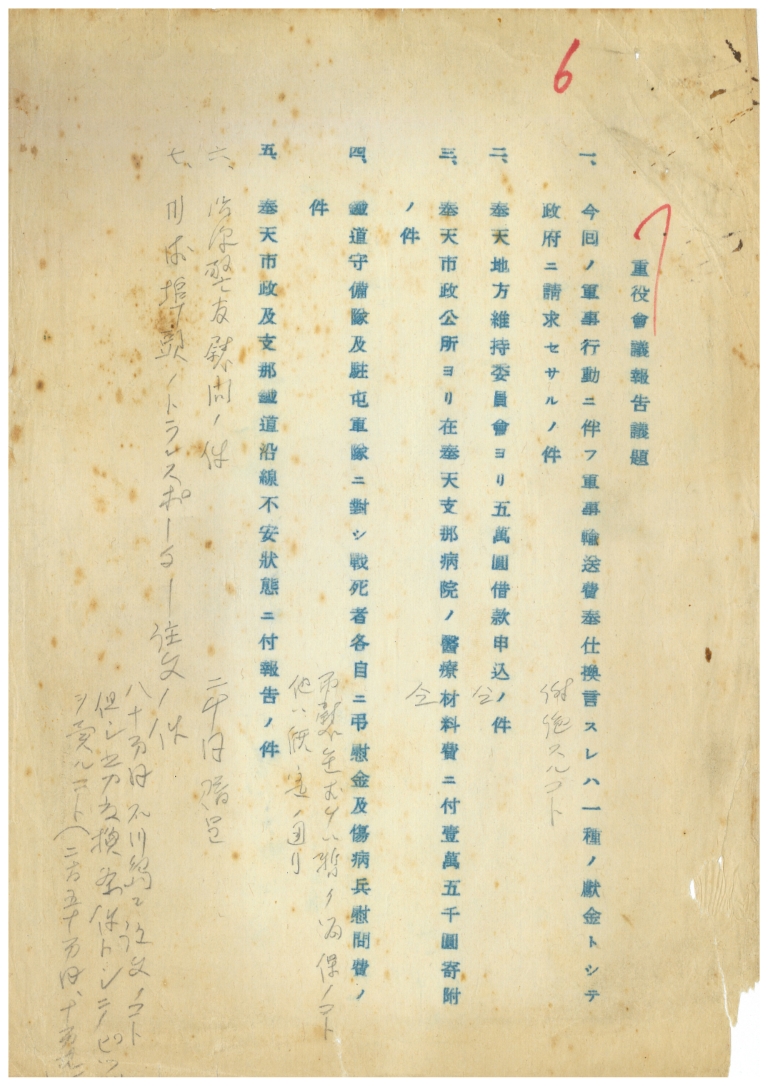 6
重役會議報告議題
一、今回ノ軍事行動ニ伴フ軍事輸送費奉仕換言スレハ一種ノ獻金トシテ
政府ニ請求セサルノ件
謝絶スルコト
二、奉天地方維持委員會ヨリ五萬圓借款申込ノ件
仝
三、奉天市政公所ヨリ在奉天支那病院ノ醫療材料費ニ付壹萬五千圓寄附
ノ件
仝
四、鐵道守備隊及駐屯軍隊ニ對シ戰死者各自ニ弔慰金及傷病兵慰問費ノ
件
留保ノコト
他ハ原案ノ通リ
五、奉天市政及支那鐵道沿線不安狀態ニ付報告ノ件
六、慰問ノ件
七、埠頭ノトランスポーター注文ノ件
八十万円石川島ニ注文ノコト